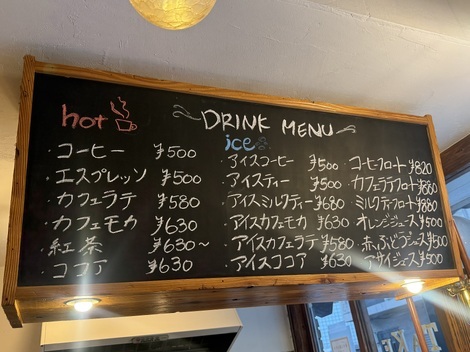 DRINK MENU
hot
・コーヒー ¥500
・エスプレッソ ¥500
・カフェラテ ¥580
・カフェモカ ¥630
・紅茶 ¥630〜
・ココア ¥630
ice
・アイスコーヒー ¥500
・アイスティー ¥500
・アイスミルクティー ¥680
・アイスカフェモカ ¥630
・アイスカフェラテ ¥580
・アイスココア ¥630
・コーヒーフロート ¥820
・カフェラテフロート ¥880
・ミルクティフロート ¥880
・オレンジジュース ¥500
・赤ぶどうジュース ¥500
・アサイジュース ¥500
TAKE